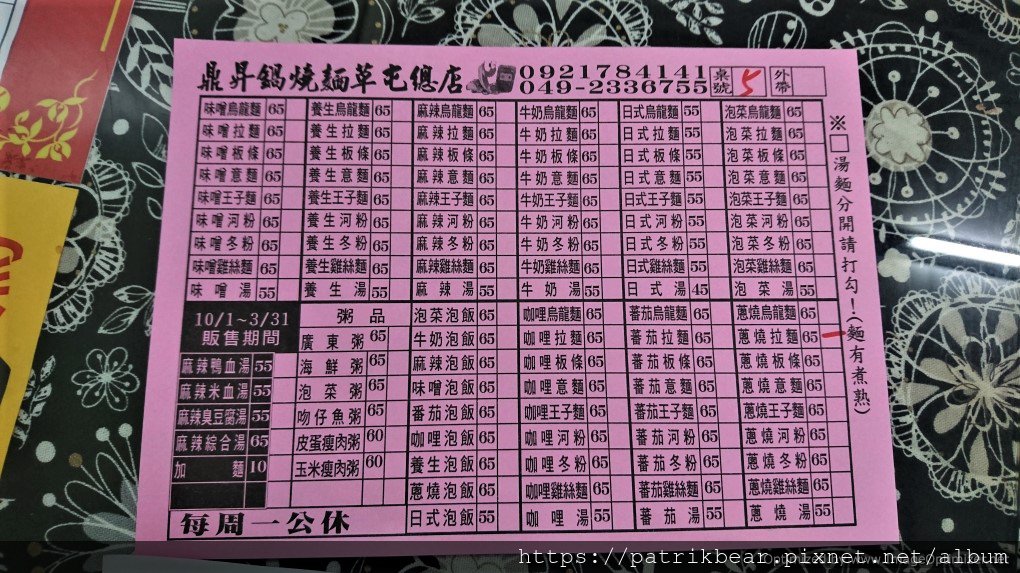 鼎昇鍋燒麵草屯總店 0921784141 049-2336755 桌號 5 外帶
味噌烏龍麵 65 養生烏龍麵 65 麻辣烏龍麵 65 牛奶烏龍麵 65 日式烏龍麵 55 泡菜烏龍麵 65
味噌拉麵 65 養生拉麵 65 麻辣拉麵 65 牛奶拉麵 65 日式拉麵 55 泡菜拉麵 65
味噌板條 65 養生板條 65 麻辣板條 65 牛奶板條 65 日式板條 55 泡菜板條 65
味噌意麵 65 養生意麵 65 麻辣意麵 65 牛奶意麵 65 日式意麵 55 泡菜意麵 65
味噌王子麵 65 養生王子麵 65 麻辣王子麵 65 牛奶王子麵 65 日式王子麵 55 泡菜王子麵 65
味噌河粉 65 養生河粉 65 麻辣河粉 65 牛奶河粉 65 日式河粉 55 泡菜河粉 65
味噌冬粉 65 養生冬粉 65 麻辣冬粉 65 牛奶冬粉 65 日式冬粉 55 泡菜冬粉 65
味噌雞絲麵 65 養生雞絲麵 65 麻辣雞絲麵 65 牛奶雞絲麵 65 日式雞絲麵 55 泡菜雞絲麵 65
味噌湯 55 養生湯 55 麻辣湯 55 牛奶湯 55 日式湯 45 泡菜湯 55
10/1~3/31 粥品 泡菜泡飯 65 咖哩烏龍麵 65 蕃茄烏龍麵 65 蔥燒烏龍麵 65
販售期間 廣東粥 65 牛奶泡飯 65 咖哩拉麵 65 蕃茄拉麵 65 蔥燒拉麵 65
麻辣鴨血湯 55 海鮮粥 65 麻辣泡飯 65 咖哩板條 65 蕃茄板條 65 蔥燒板條 65
麻辣米血湯 55 泡菜粥 65 味噌泡飯 65 咖哩意麵 65 蕃茄意麵 65 蔥燒意麵 65
麻辣臭豆腐湯 55 吻仔魚粥 65 番茄泡飯 65 咖哩王子麵 65 蕃茄王子麵 65 蔥燒王子麵 65
麻辣綜合湯 65 皮蛋瘦肉粥 60 咖哩泡飯 65 咖哩河粉 65 蕃茄河粉 65 蔥燒河粉 65
加麵 10 玉米瘦肉粥 60 養生泡飯 65 咖哩冬粉 65 蕃茄冬粉 65 蔥燒冬粉 65
蔥燒泡飯 65 咖哩雞絲麵 65 蕃茄雞絲麵 65 蔥燒雞絲麵 65
每周一公休 日式泡飯 55 咖哩湯 55 蕃茄湯 55 蔥燒湯 55
※□湯麵分開請打勾！(麵有煮熟)
https://patrikbear.pixnet.net/album